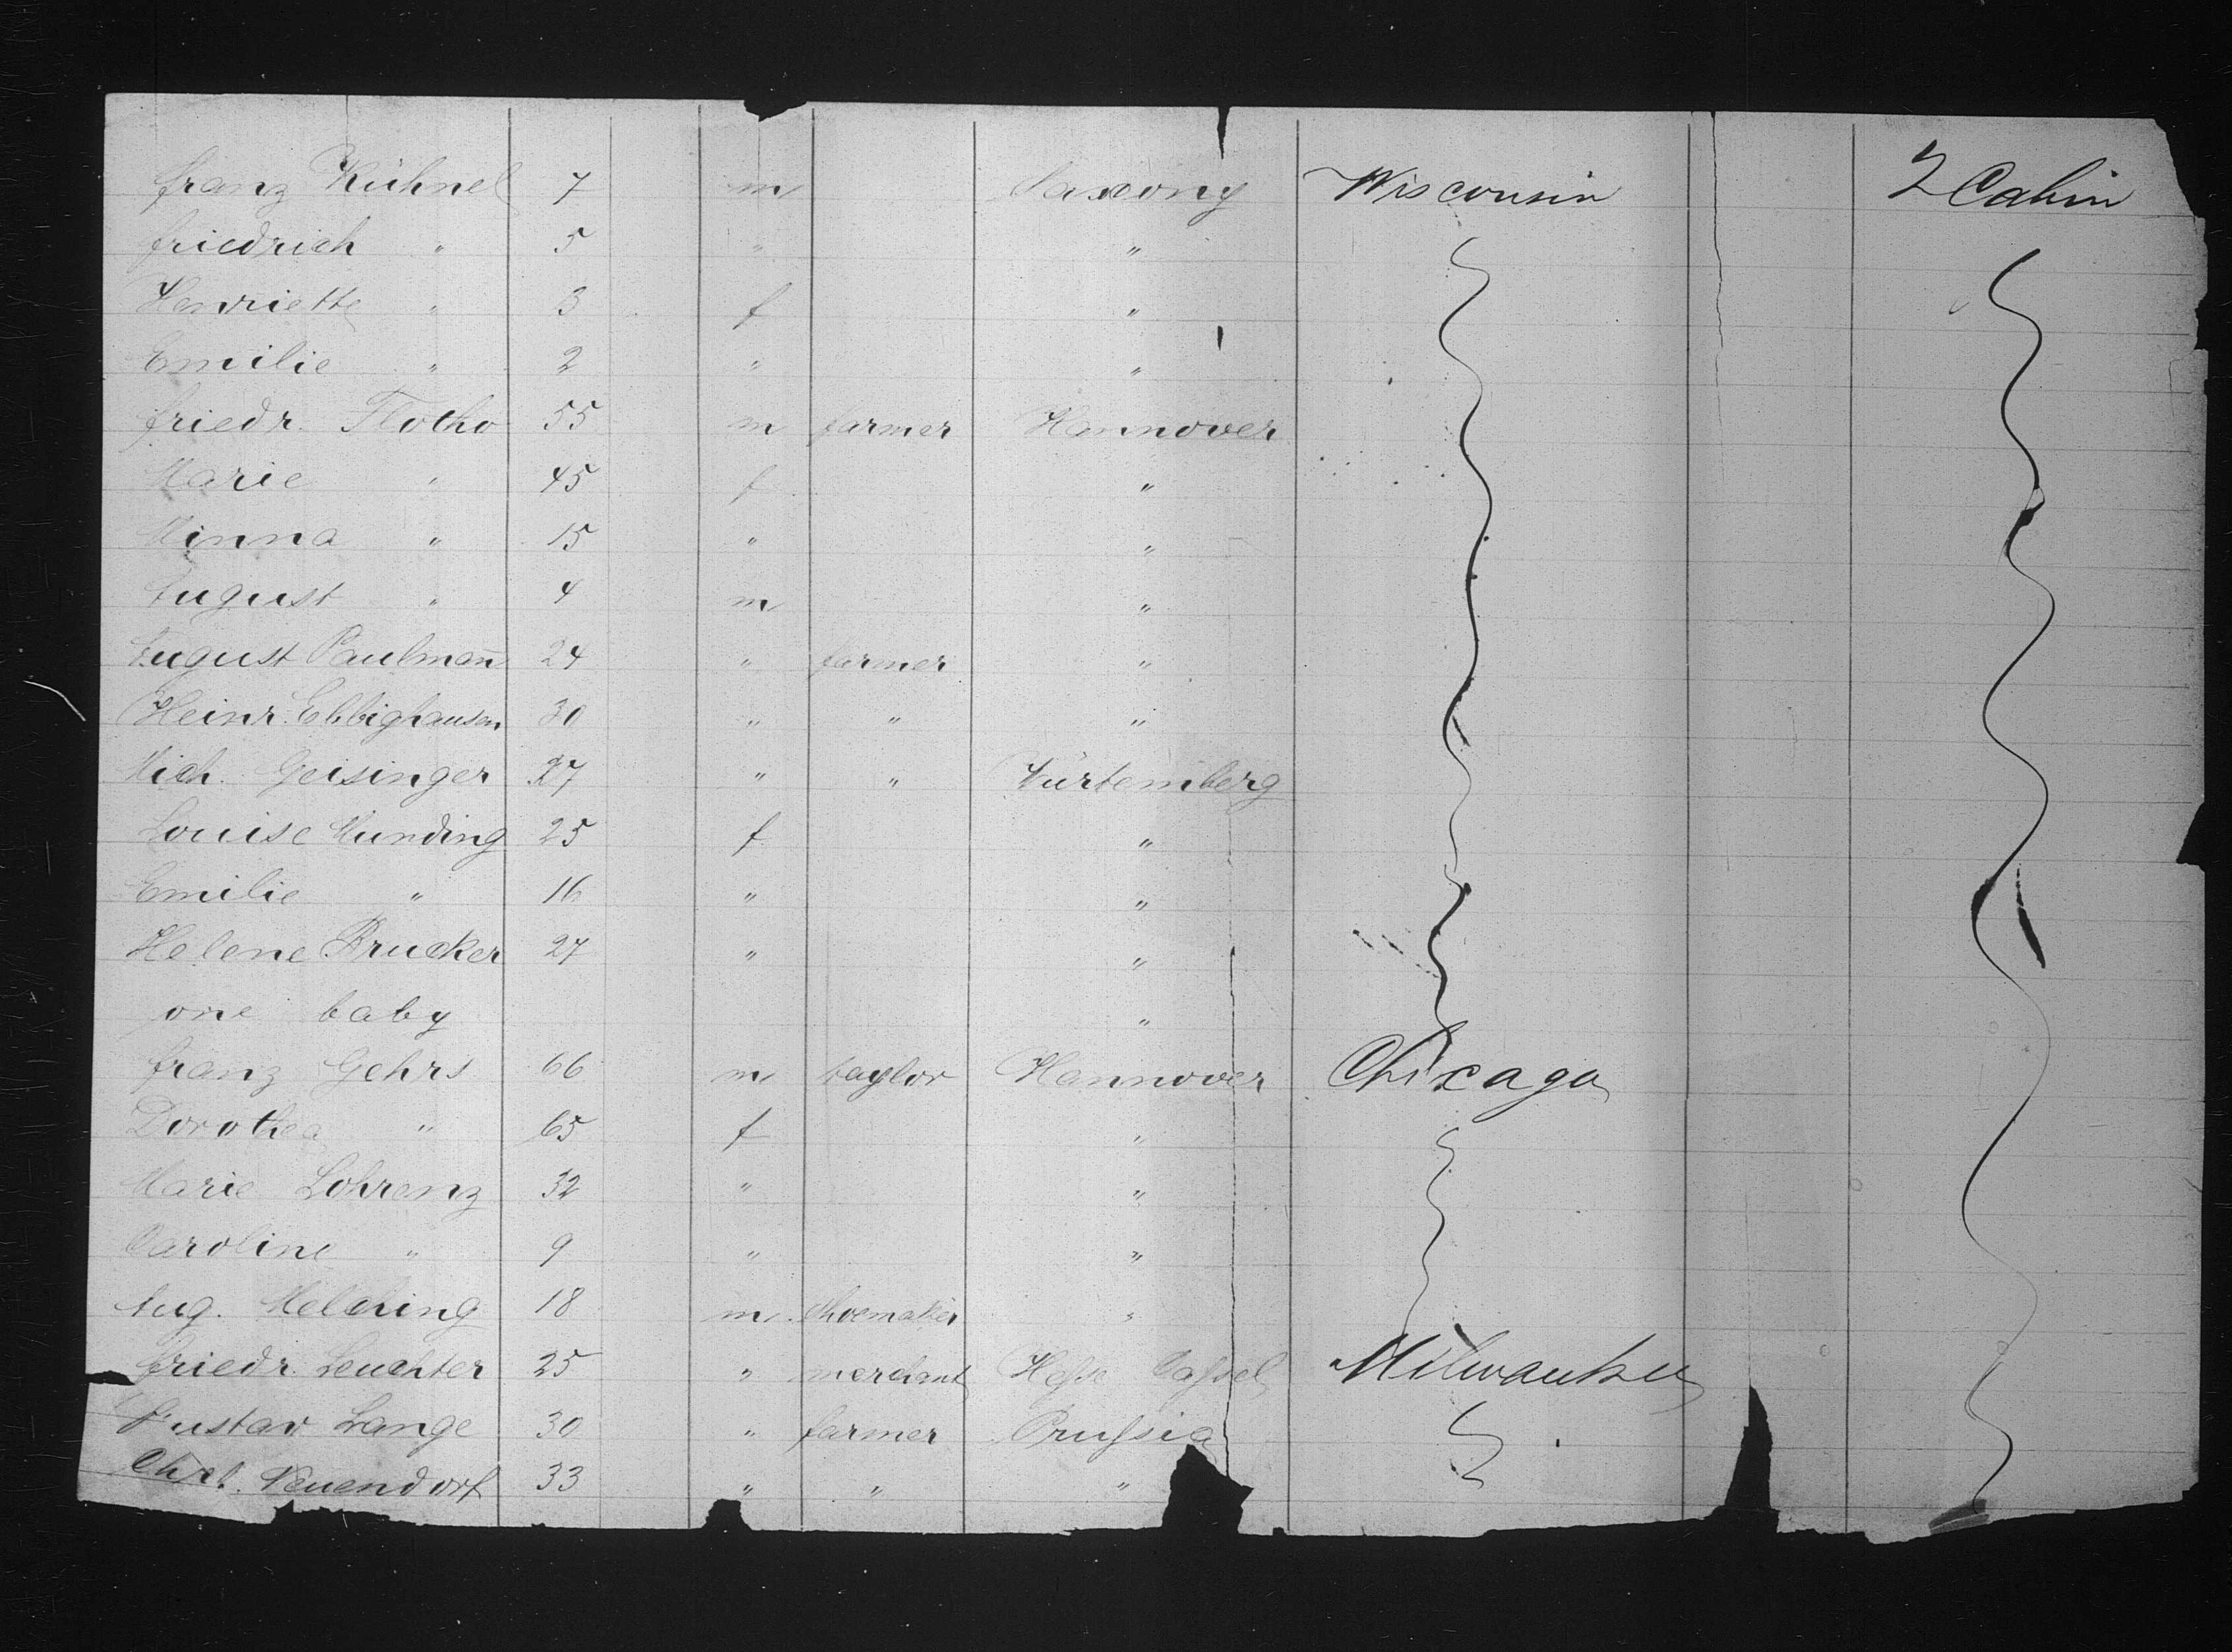 Franz Kühnel 7 m Saxony Wisconsin 2 Cabin
Friedrich " 5 " "
Henriette " 3 f "
Emilie " 2 " "
Friedr. Flotho 55 m farmer Hannover
Marie " 45 f "
Minna " 15 " "
August " 4 m "
August Paulman̄ 24 " farmer "
Heinr. Ebbighausen 30 " " "
Mich. Geisinger 27 " " Würtemberg
Louise Munding 25 f "
Emilie " 16 " "
Helene Brucker 27 " "
one baby "
Franz Gehrs 66 m taylor Hannover Chicago
Dorothea " 65 f "
Marie Lohrenz 32 " "
Caroline " 9 " "
Aug. Melching 18 m shoemaker "
Friedr. Leuchter 25 " merchant Hesse Cassel Milwaukee
Gustav Lange 30 " farmer Prussia
Neuendorf 33 " " "